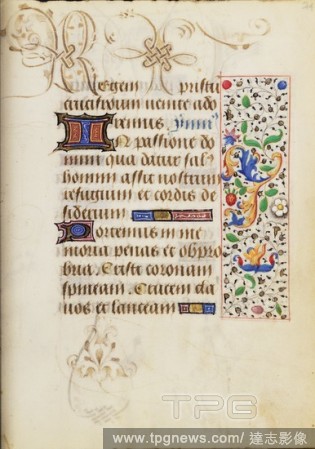 Regem
venite ado
remus ymn
In passione do
mini qua datur sal
homini nostrum
refugium et cordis de
siderium
Portemus in me
moria penas et obpro
bria. Cristi coronam
spineam. Crucem cla
uos et lanceam
TPG
www.tpgnews.com/ 達志影像